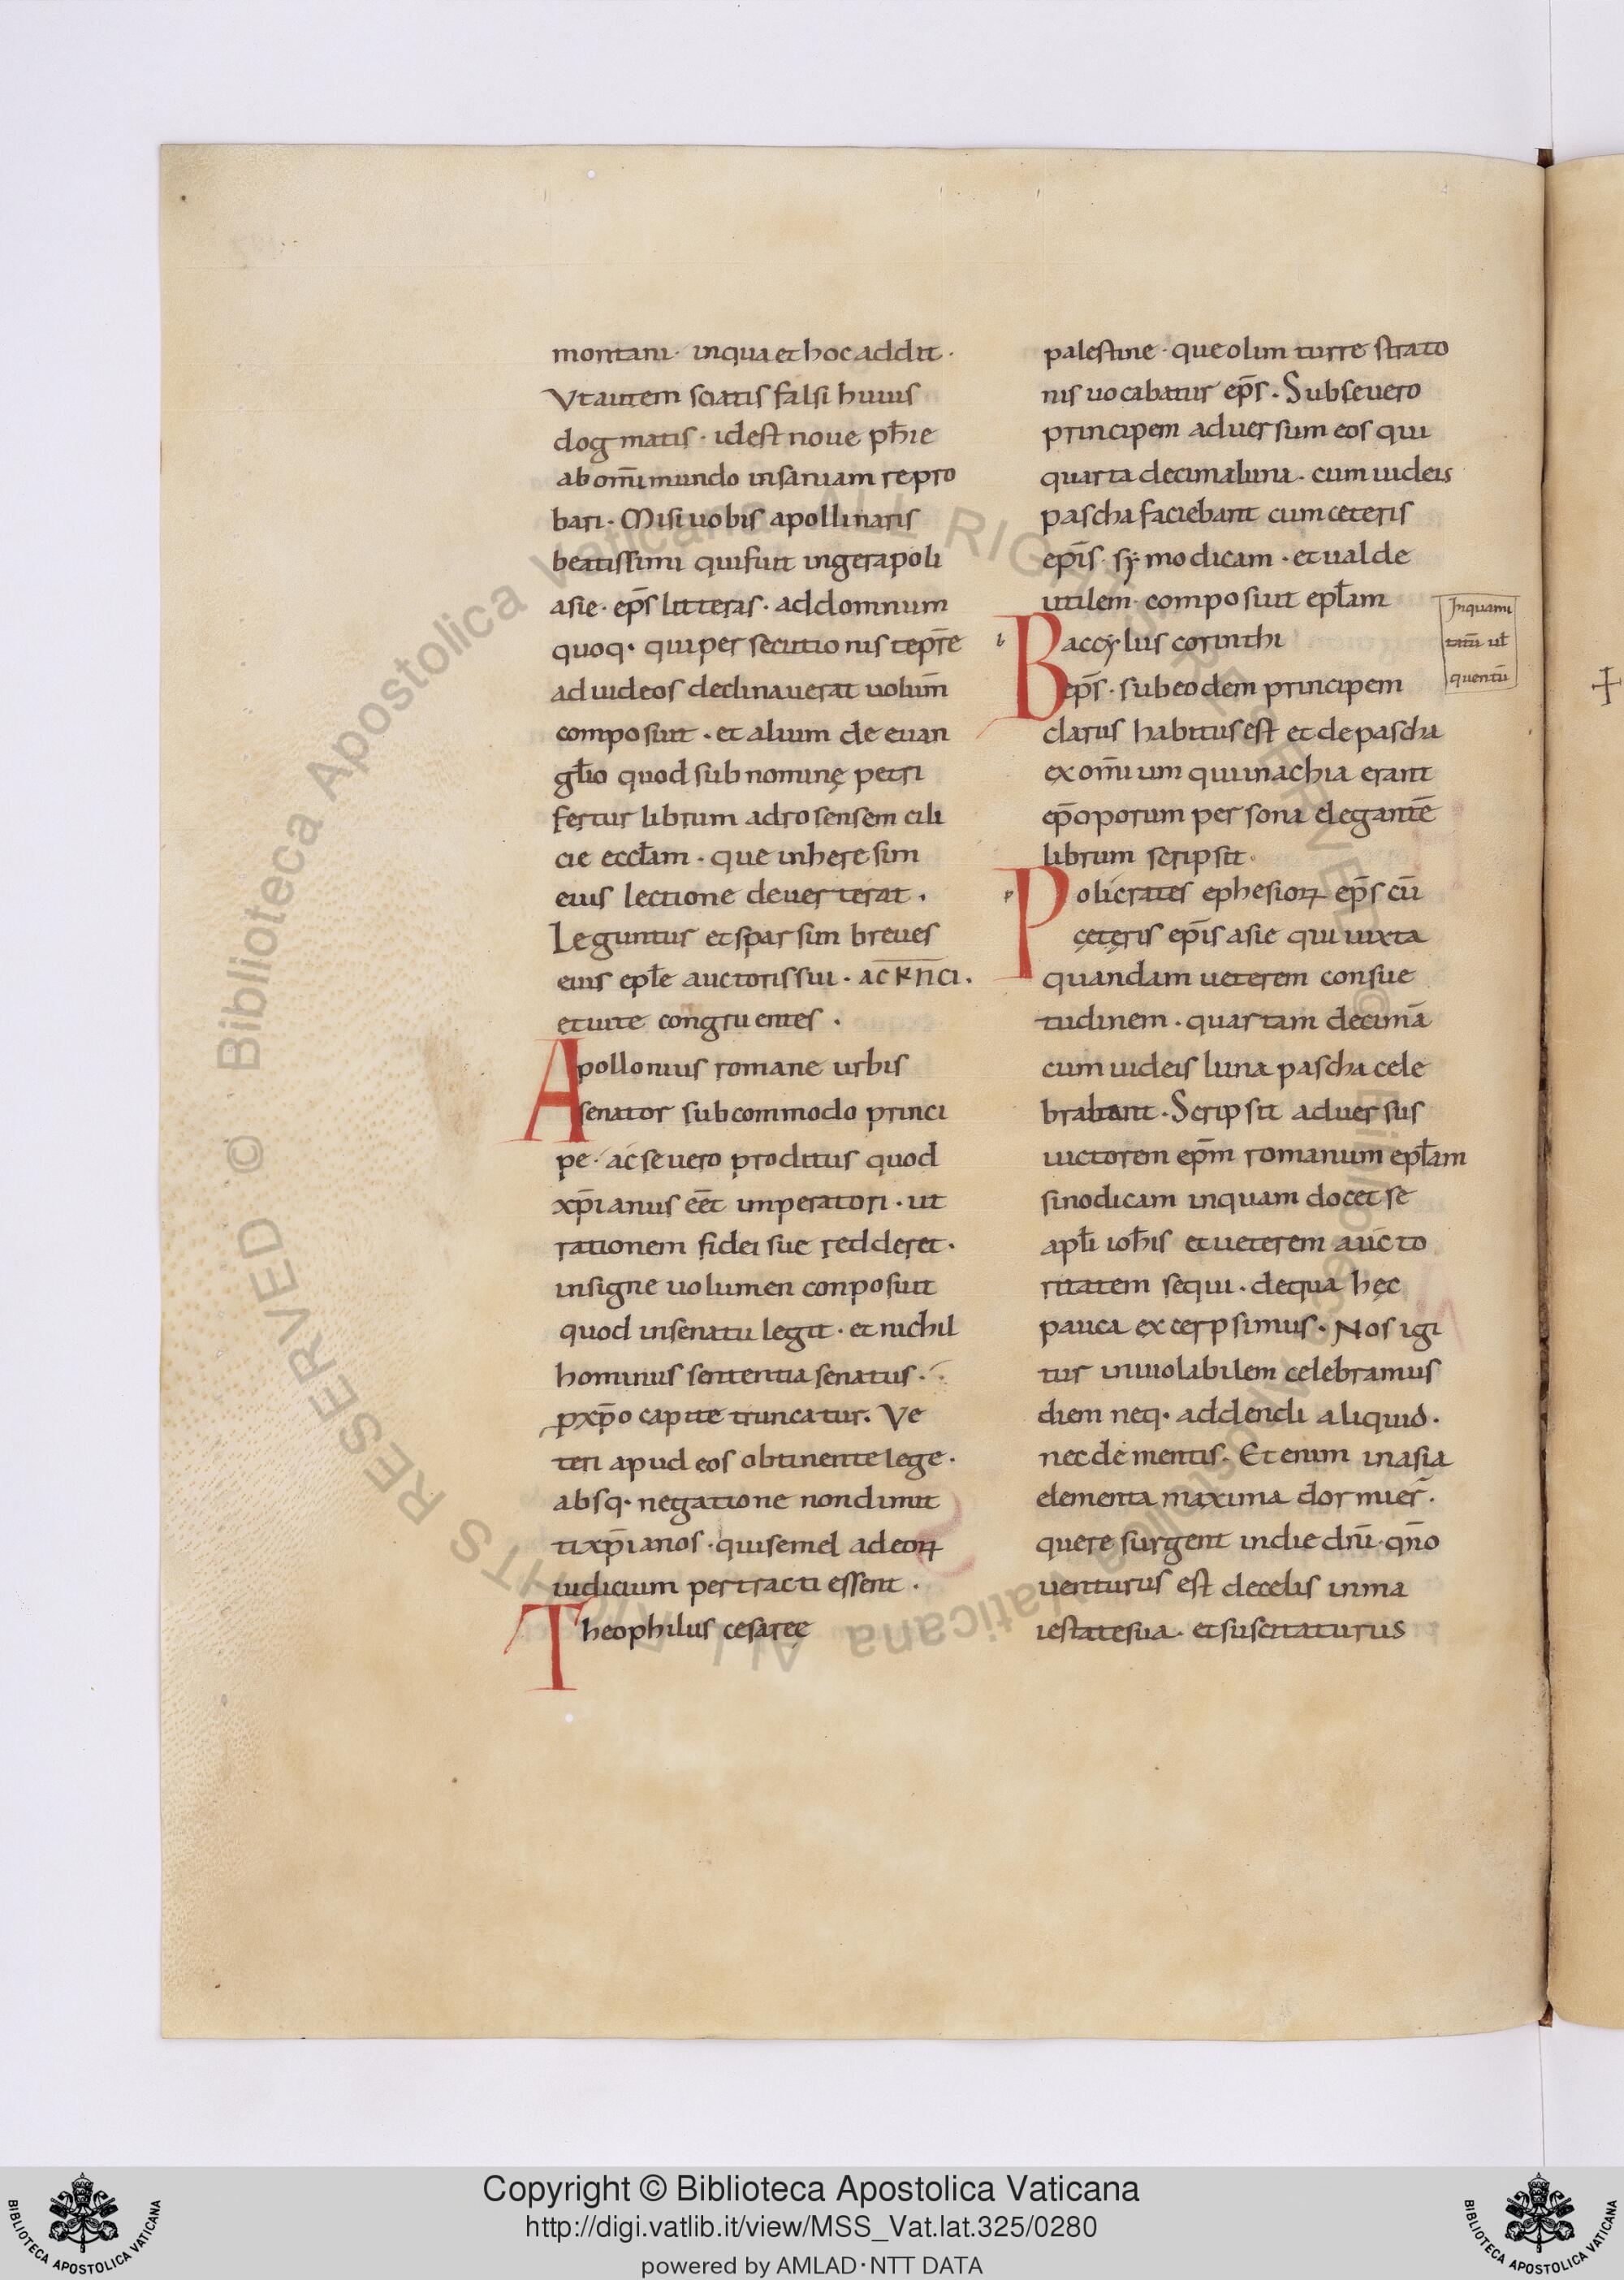 montani · inqua et hoc addit ·
Ut autem sciatis falsi huius
dogmatis · idest noue ph̄ie
ab om̄i mundo insaniam repro
bari · Misi uobis apollinaris
beatissimi qui fuit ingerapoli
asie · ep̄s litteras · ad domnum
quoq· qui persecutionis tep̄re
ad uideos declinauerat uolum̄
composuit · et alium de euan
gl̄io quod sub nominę petri
fertur librum ad rosensem cili
cie eccl̄am · que in heresim
eius lectione deuerterat ·
Leguntur et sparsim breues
eius epl̄e auctoris sui · ac k̄n̄ci ·
et uite congruentes ·
Apollonius romane urbis
senator sub commodo princi
pe · ac seuero proditus quod
xp̄ianus eēt imperatori · ut
rationem fidei sue redderet ·
insigne uolumen conposuit
quod in senatu legit · et nichil
hominus sententia senatus ·
p xp̄o capite truncatur. Ve
teri apud eos obtinente lege ·
absq· negatione non dimit
ti xp̄ianos · qui semel ad eoꝝ
iudicium pertracti essent ·
Theophilus cesareę
palestine · que olim turre strato
nis uocabatur ep̄s · Sub seuero
principem aduersum eos qui
quarta decima luna · cum iudeis
pascha faciebant cum ceteris
ep̄is · sẏmodicam · et ualde
utilem composuit epl̄am
b
Baccẏlus corinthi
ep̄s · sub eodem principem
clarus habitus est et de pascha
ex om̄ium qui in achia erant
ep̄oporum persona elegantē
librum scripsit ·
p
Policrates ephesioꝝ ep̄s cū
cęteris ep̄is asie qui iuxta
quandam ueterem consue
tudinem · quartam decimā
cum iudeis luna pascha cele
brabant · Scripsit aduersus
uictorem ep̄m romanum epl̄am
sinodicam inquam docet se
apl̄i ioh̄is et ueterem aucto
ritatem sequi · de qua hęc
pauca excerpsimus · Nos igi
tur inuiolabilem celebramus
diem neq· addendi aliquid ·
nec dementis · Et enim in asia
elementa maxima dormier̄ ·
quere surgent in die dn̄i · qn̄o
uenturus est de celis in ma
iestate sua · et suscitaturus
Inquami
titū ul̄
quentū